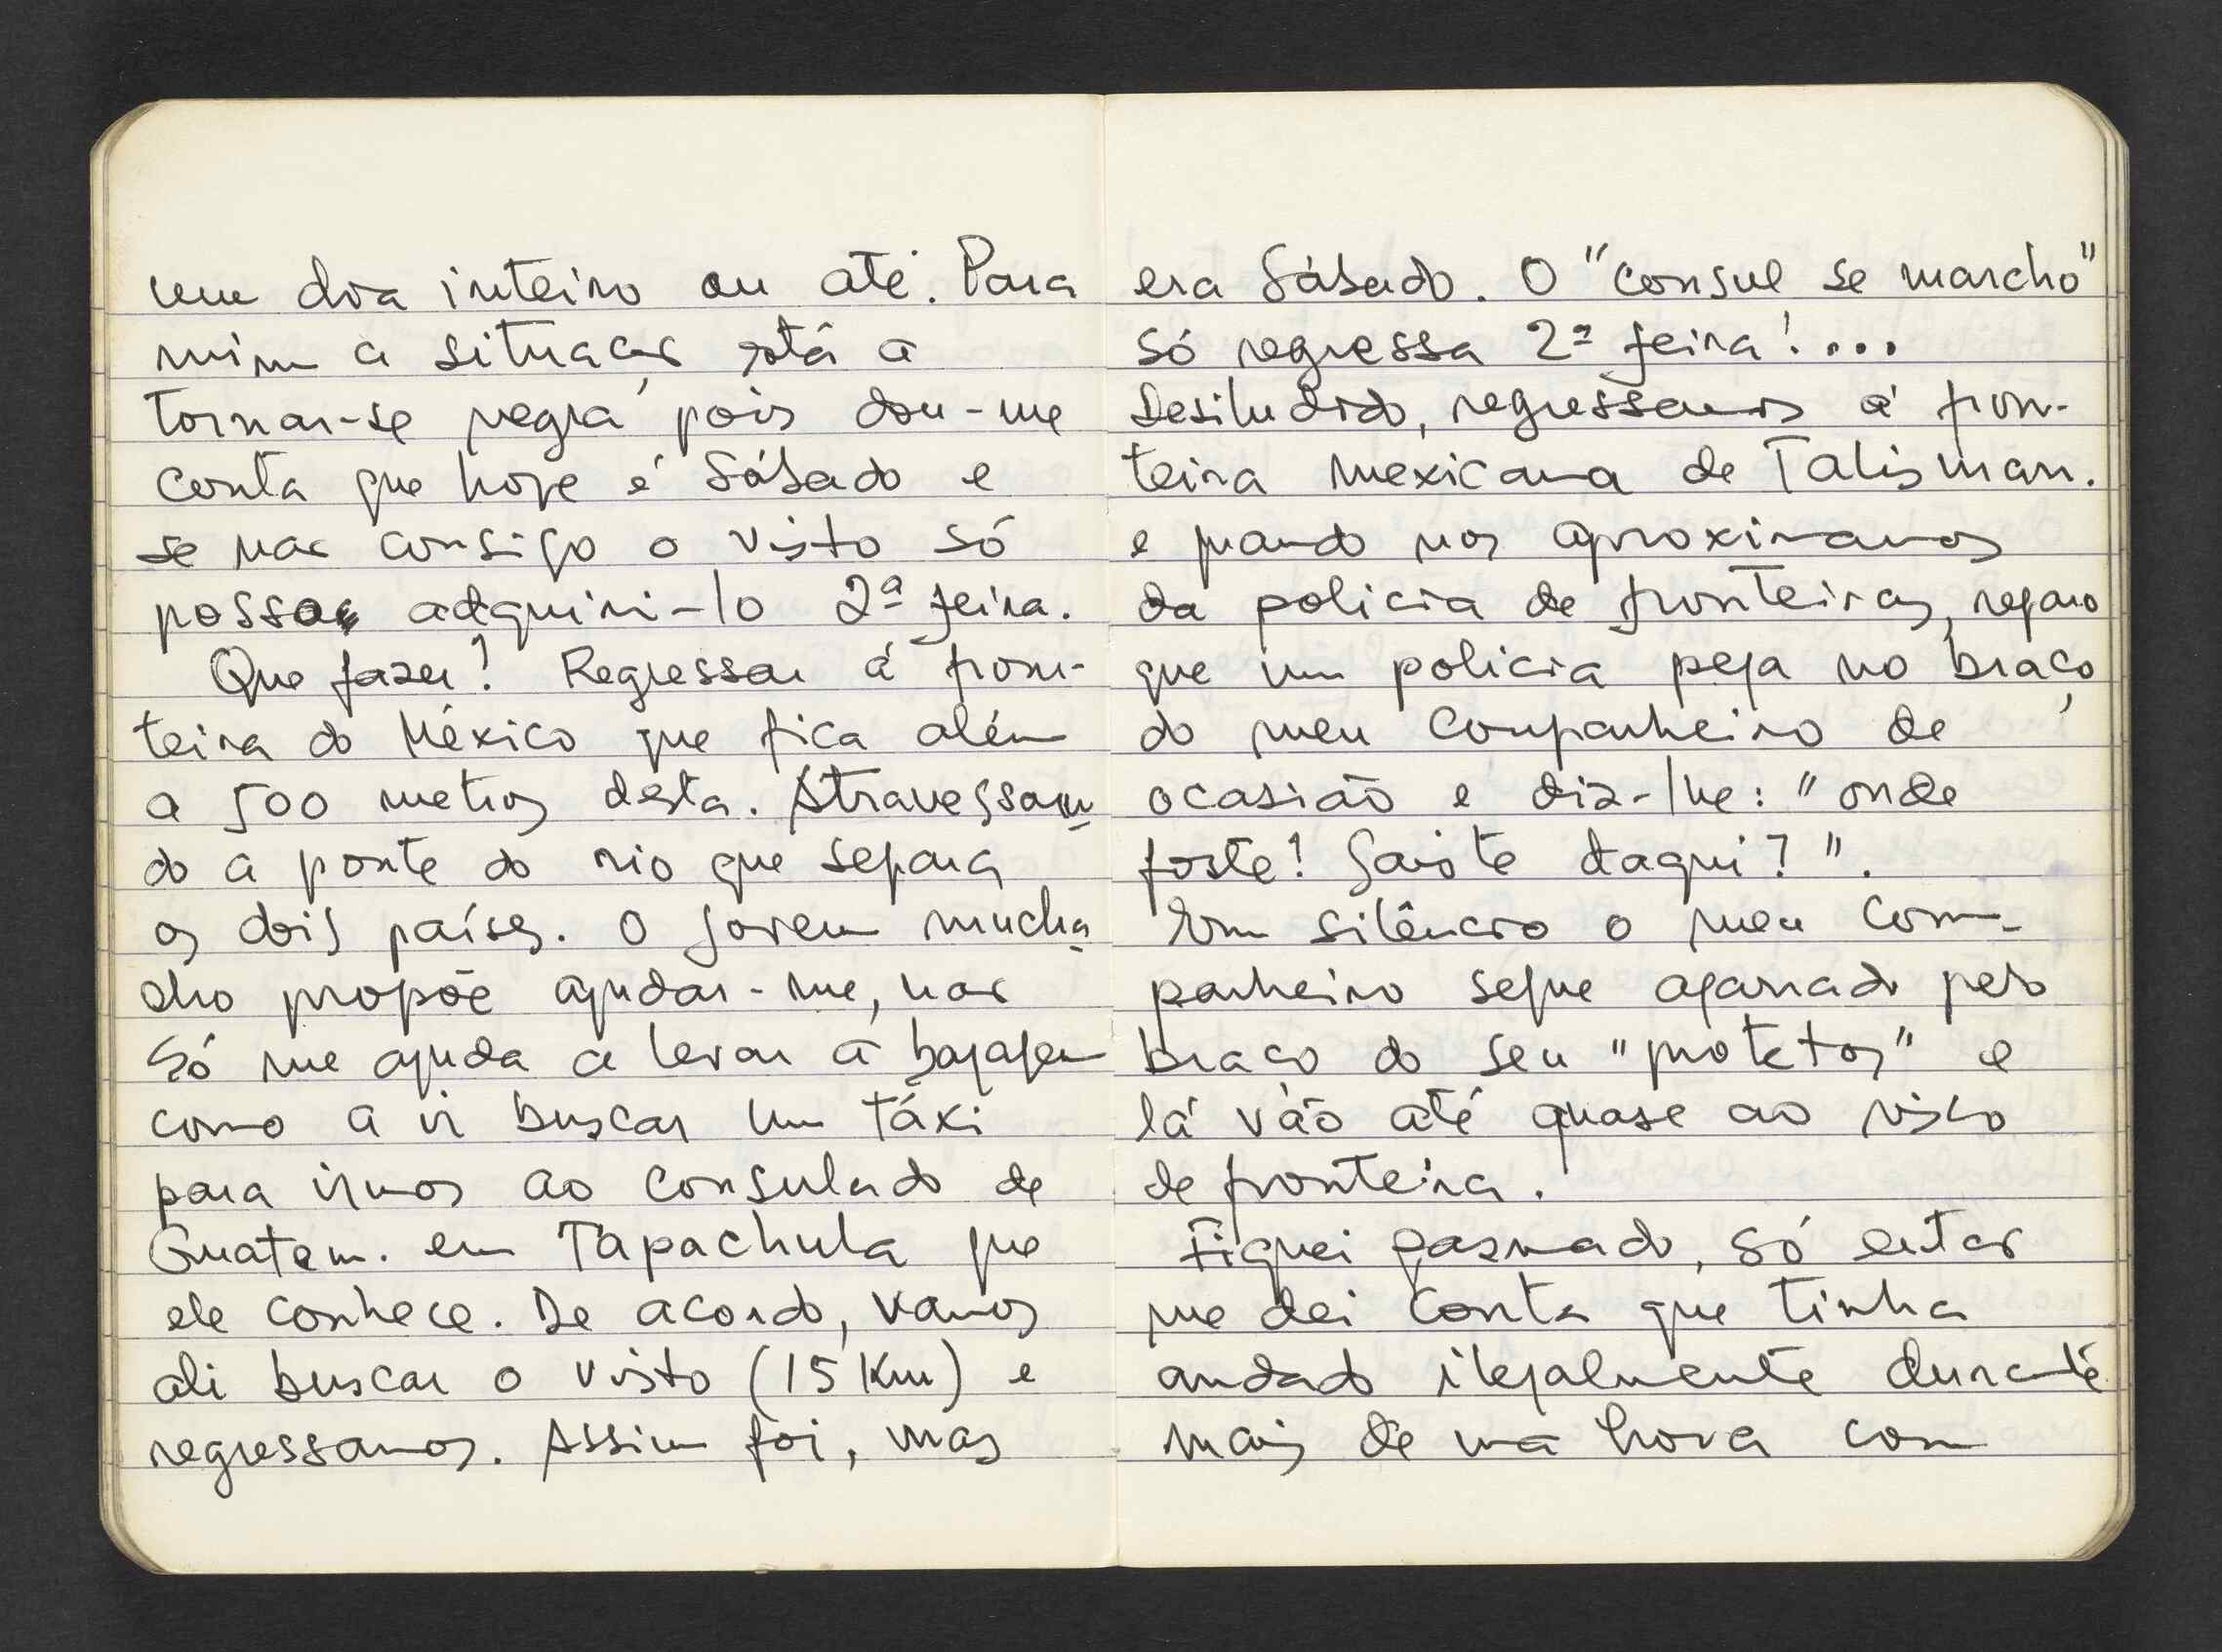 um dia inteiro ou até. Para
mim a situação está a
tornar-se negra pois dou-me
conta que hoje é Sábado e
se não consigo o visto só
posso adquiri-lo 2ª feira.
Que fazer? Regressar á fron-
teira do México que fica além
a 500 metros desta. Atravessan-
do a ponte do rio que separa
os dois países. O jovem mucha-
cho propõe ajudar-me, não
só me ajuda a levar a bagagem
como a ir buscar um táxi
para irmos ao consulado de
Guatem. em Tapachula que
ele conhece. De acordo, vamos
ali buscar o visto (15 Km) e
regressamos. Assim foi, mas
era Sábado. O "consul se marcho"
só regressa 2ª feira!...
Desiludido, regressamos á fron-
teira mexicana de Talisman.
e quando nos aproximamos
da policia de fronteiras, reparo
que um policia pega no braço
do meu companheiro de
ocasião e diz-lhe: "onde
foste? Saiste daqui?".
Em silêncio o meu com-
panheiro segue agarrado pelo
braço do seu "protetor" e
lá vão até quase ao risco
de fronteira.
Fiquei pasmado, só então
me dei conta que tinha
andado ilegalmente durante
mais de uma hora com